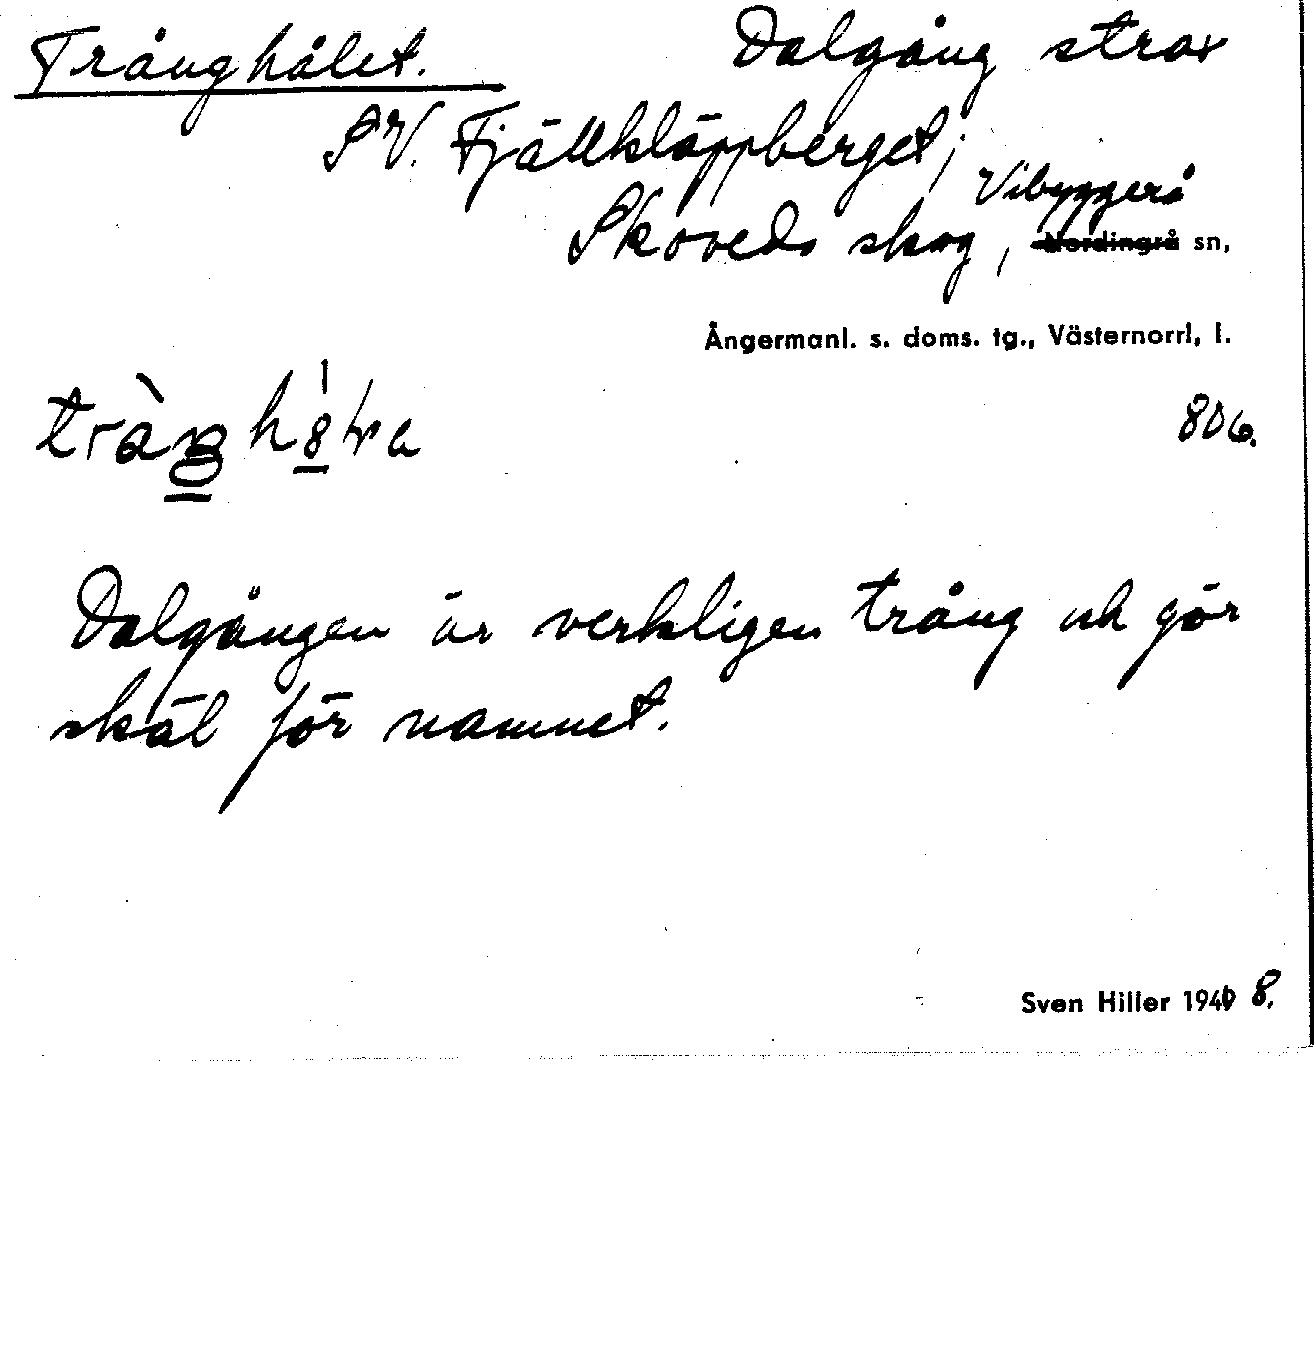 Trånghålet.
Dalgång strax
SV. Fjällkläppberget;
Skoveds skog, Vibyggerå
Nordingrå sn,
Ångermanl. s. doms. tg., Västernorrl, l.
806.
Dalgången är verkligen trång och gör
skäl för namnet.
Sven Hiller 194 8.